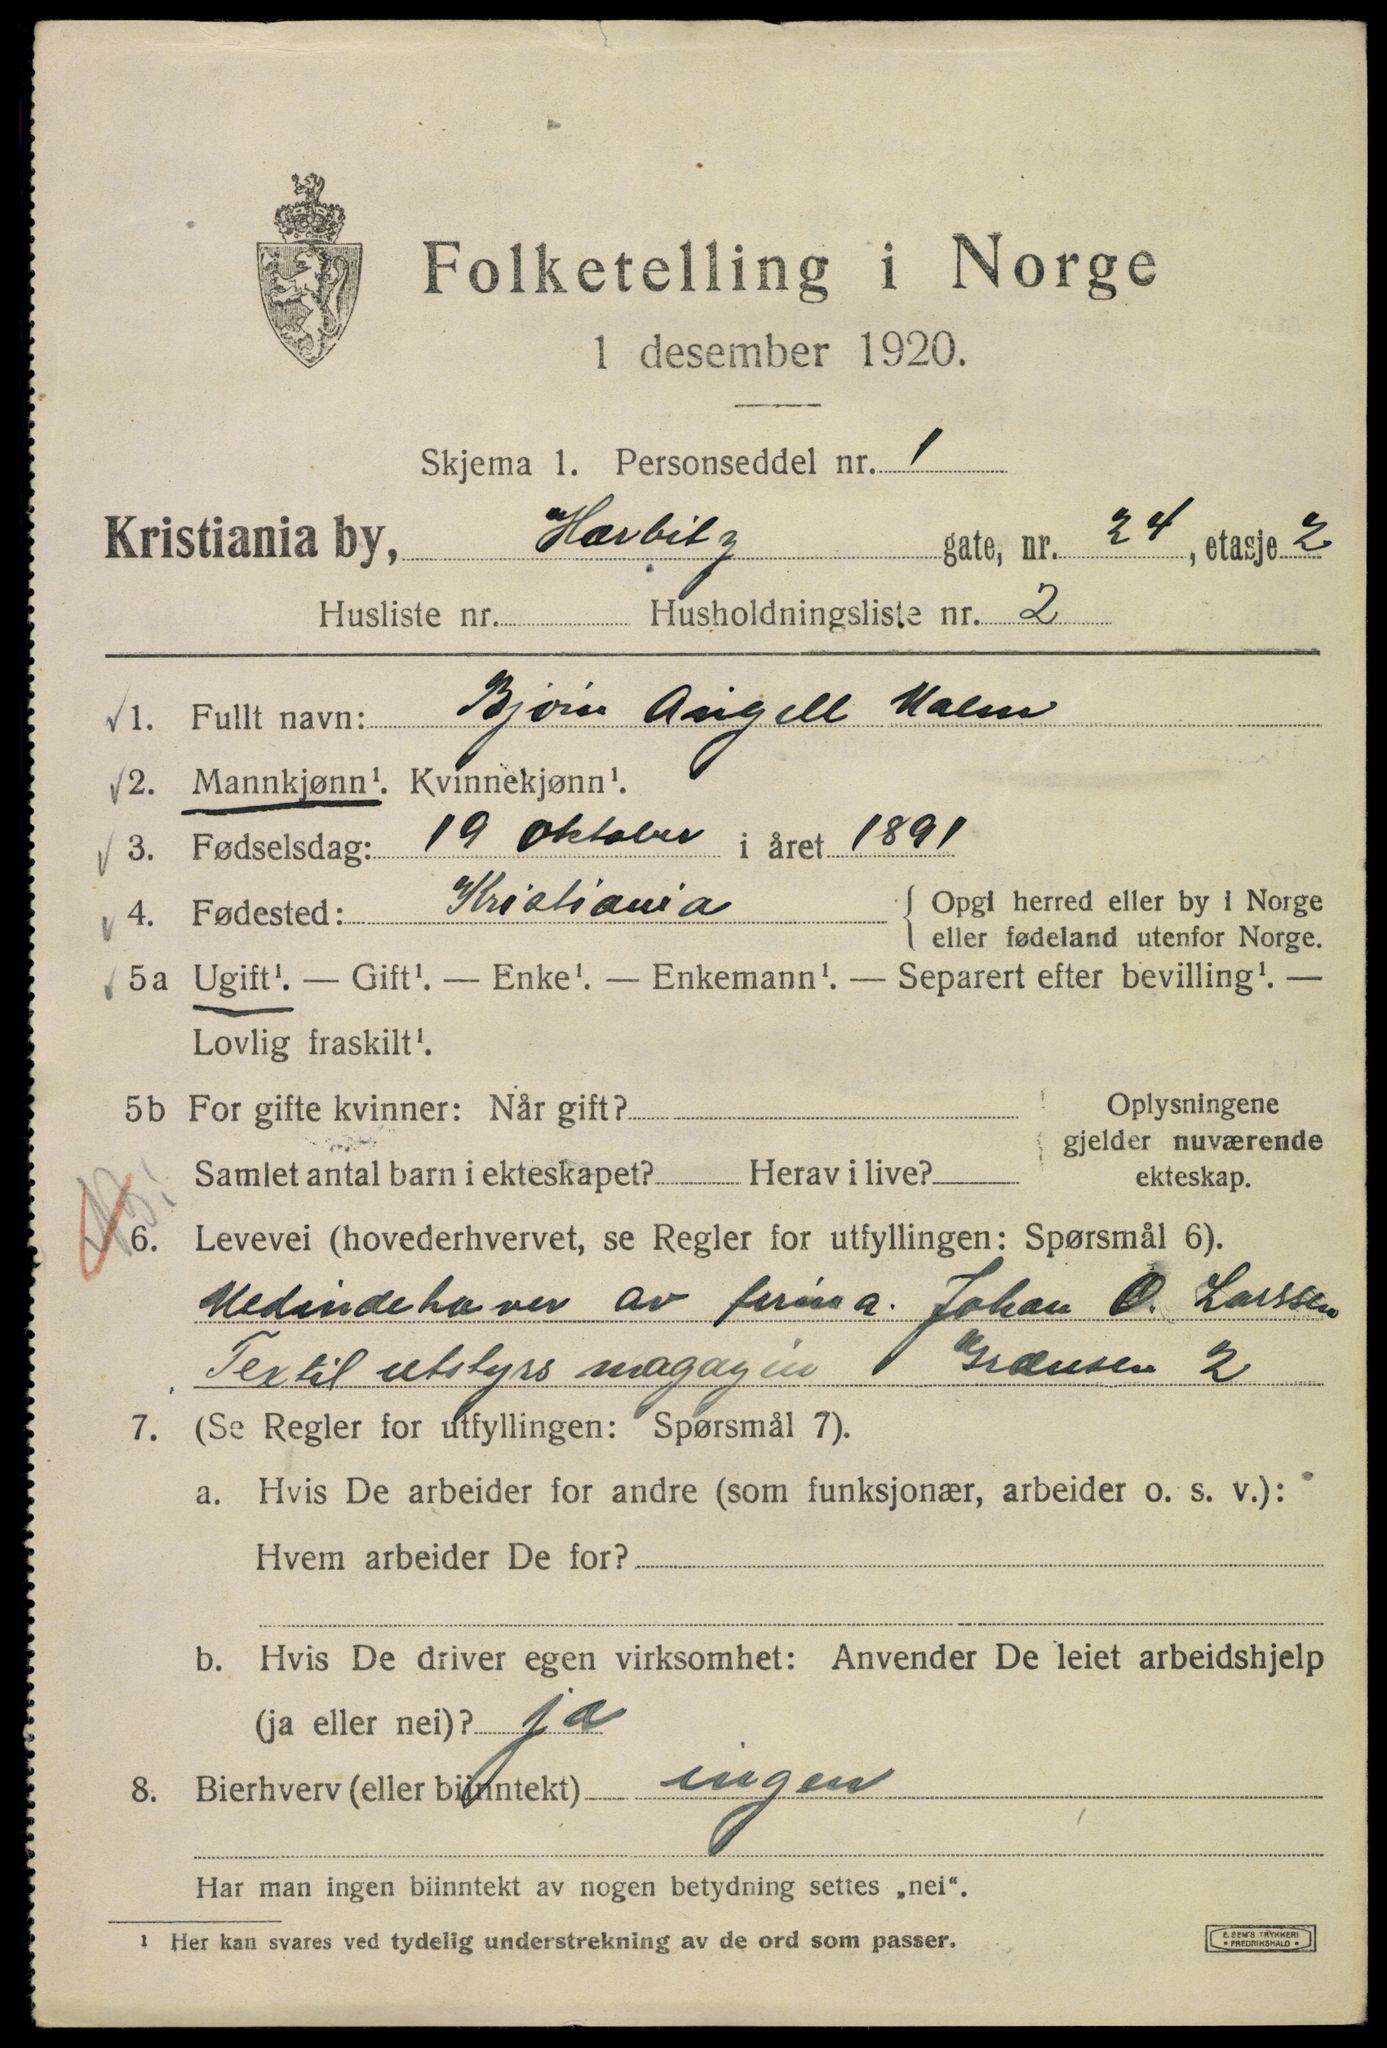 Folketelling i Norge
1 desember 1920.
Skjema 1. Personseddel nr. 1
Kristiania by, Harbitz gate, nr. 24, etasje 2
Husliste nr. Husholdningsliste nr. 2
1. Fullt navn: Bjørn Angell Malm
2. Mannkjønn¹. Kvinnekjønn¹.
3. Fødselsdag: 19 oktober i året 1891
4. Fødested: Kristiania { Opgi herred eller by i Norge
eller fødeland utenfor Norge.
5a Ugift¹. — Gift¹. — Enke¹. — Enkemann¹. — Separert efter bevilling¹. —
Lovlig fraskilt¹.
5b For gifte kvinner: Når gift?
Samlet antal barn i ekteskapet? Herav i live?
Oplysningene
gjelder nuværende
ekteskap.
6. Levevei (hovederhvervet, se Regler for utfyllingen: Spørsmål 6).
Medindehaver av firma. Johan O. Larssen
Textil utstyrs magazin Grænsen 2
7. (Se Regler for utfyllingen: Spørsmål 7).
a. Hvis De arbeider for andre (som funksjonær, arbeider o. s. v.):
Hvem arbeider De for?
b. Hvis De driver egen virksomhet: Anvender De leiet arbeidshjelp
(ja eller nei)? ja
8. Bierhverv (eller biinntekt) ingen
Har man ingen biinntekt av nogen betydning settes „nei“.
¹ Her kan svares ved tydelig understrekning av de ord som passer.
E. SEM'S TRYKKERI
FREDRIKSHALD